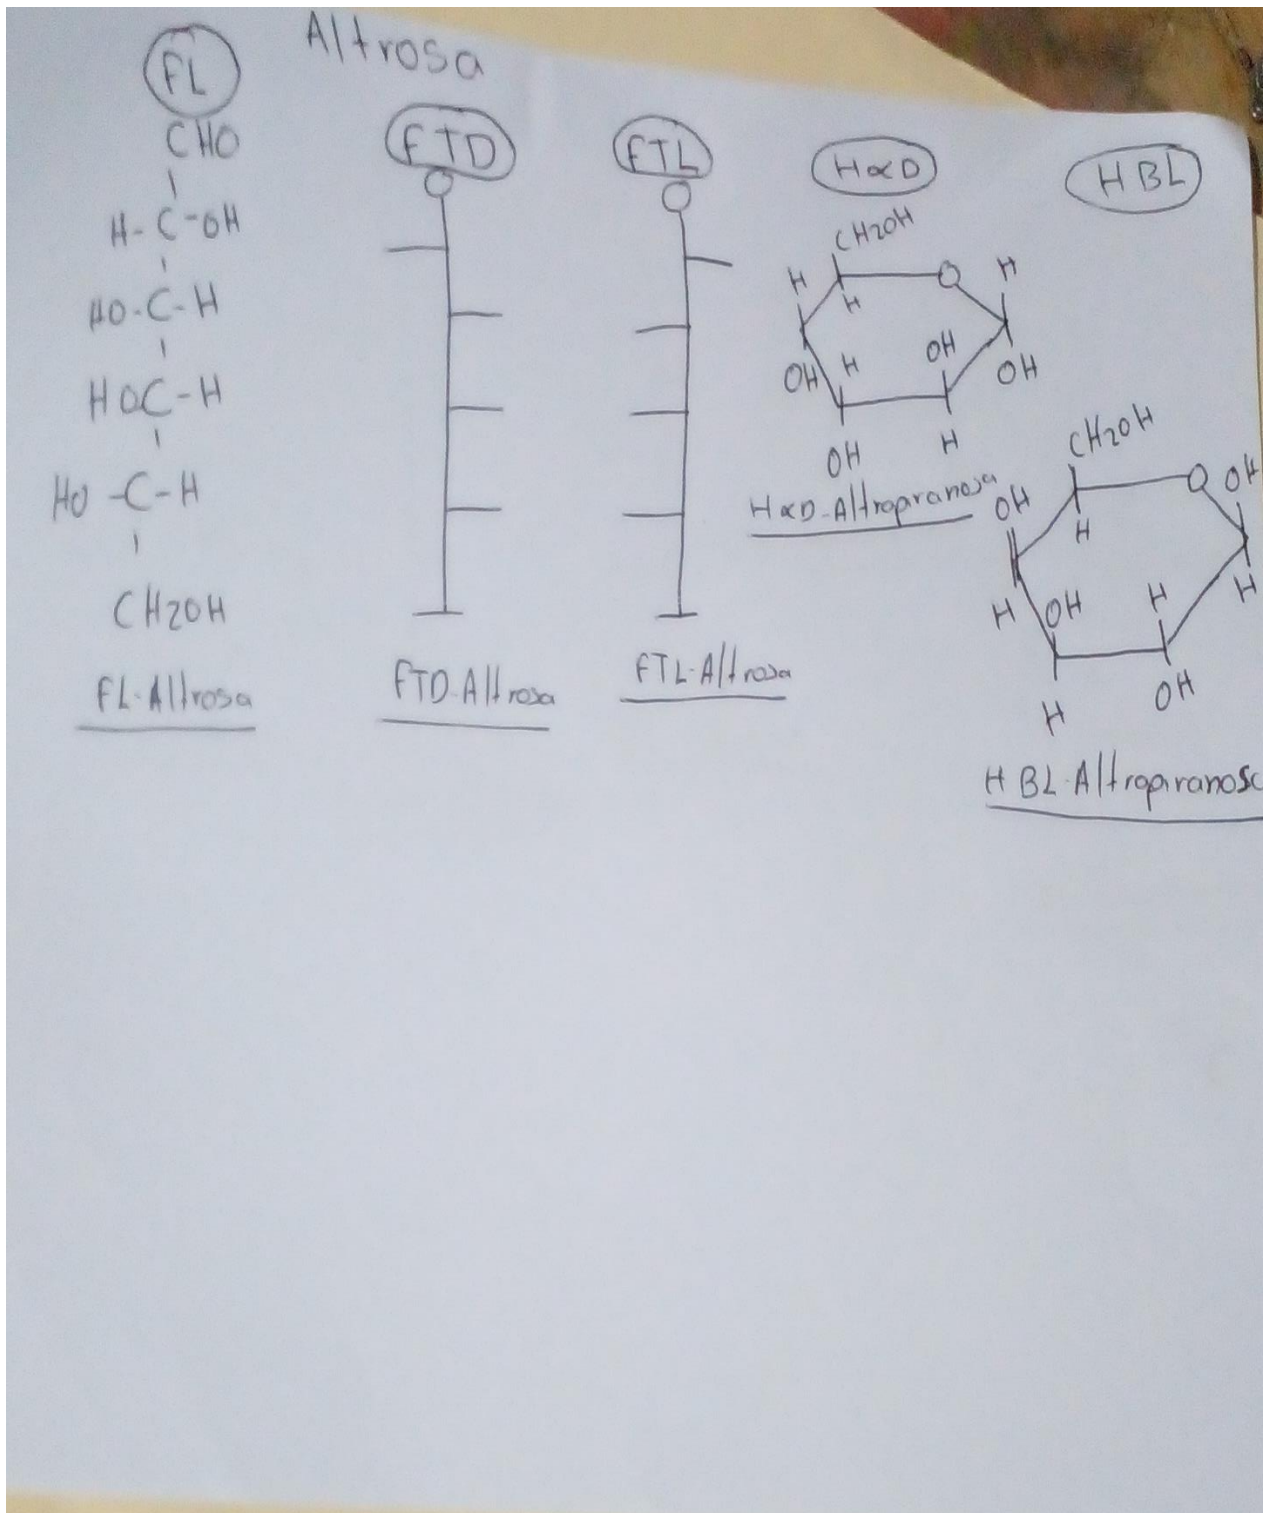 Altrosa
FL
CHO
H-C-OH
HO-C-H
HOC-H
HO-C-H
CH2OH
FL-Altrosa
FTD
FTD-Altrosa
FTL
FTL-Altrosa
H∝D
CH2OH
H
O
H
H
OH
H
OH
OH
OH
H
H∝D-Altropranosa
HBL
CH2OH
OH
O
OH
H
H
OH
H
H
H
OH
HBL-Altropiranosa